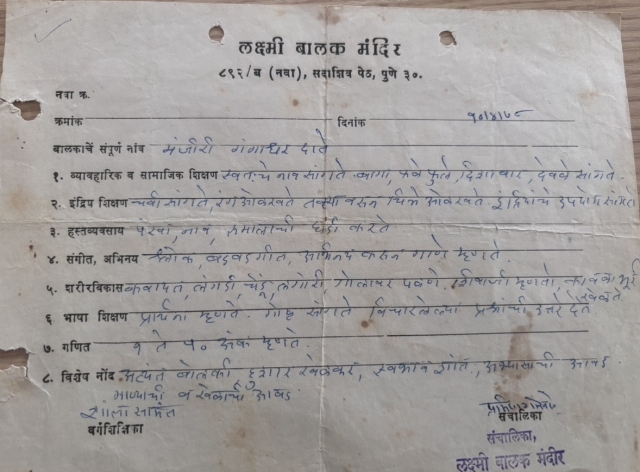 लक्ष्मी बालक मंदिर
८९२/ब (नवा), सदाशिव पेठ, पुणे ३०.
नवा क्र.
क्रमांक दिनांक १०/४/७८
बालकाचें संपूर्ण नांव मंजीरी गंगाधर दाते
१. व्यावहारिक व सामाजिक शिक्षण स्वतःचे नाव सांगते फुले, दिशा वार, सांगते.
२. इंद्रिय शिक्षण चवी सांगते, रंग ओळखते चित्रे ओळखते. इंद्रियांचे उपयोग सांगते
३. हस्तव्यवसाय पंखा, नाव, रुमालाची घडी करते
४. संगीत, अभिनय श्लोक, बडबडगीत, अभिनय करुन गाणे म्हणते.
५. शरीरविकास कवायत, लंगडी, चेंडू, लगोरी, गोलावर पळणे.
खेळते
६ भाषा शिक्षण प्रार्थना म्हणते. गोष्ट सांगते विचारलेल्या प्रश्नांची उत्तरे देते
७. गणित १ ते ५० अंक म्हणते.
८. विशेष नोंद अत्यंत बोलकी हुशार खेळकर, स्वभाव शांत, अभ्यासाची आवड
गाण्याची व खेळाची आवड
वर्गशिक्षिका संचालिका
संचालिका,
लक्ष्मी बालक मंदीर